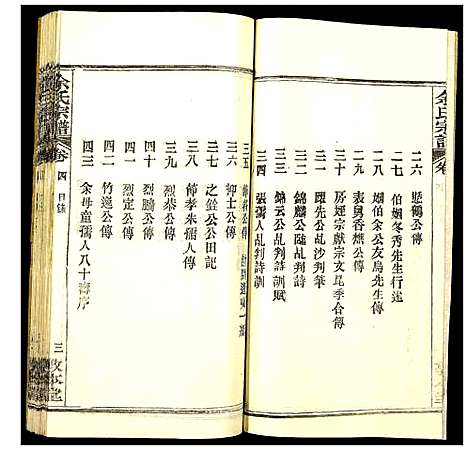 余氏宗譜
卷
二六 懸鶴公傳
二七 伯姻冬秀先生行述
二八 姻伯余公友烏先生傳
二九 表舅香樵公傳
三十 房姪宗獻宗文昆季合傳
三一 躍先公乩沙判筆
三二 錦麟公隨乩判詩
三三 錦云公乩判詩訓賦
三四 張孺人乩判詩訓
余氏宗譜
卷四 目錄
三五 公傳
三六 抑士公傳
三七 之鋡公公田記
三八 節孝朱孺人傳
三九 烈恭公傳
四十 烈懋公傳
四一 烈定公傳
四二 竹逸公傳
四三 余母童孺人八十壽序
三
敦本堂